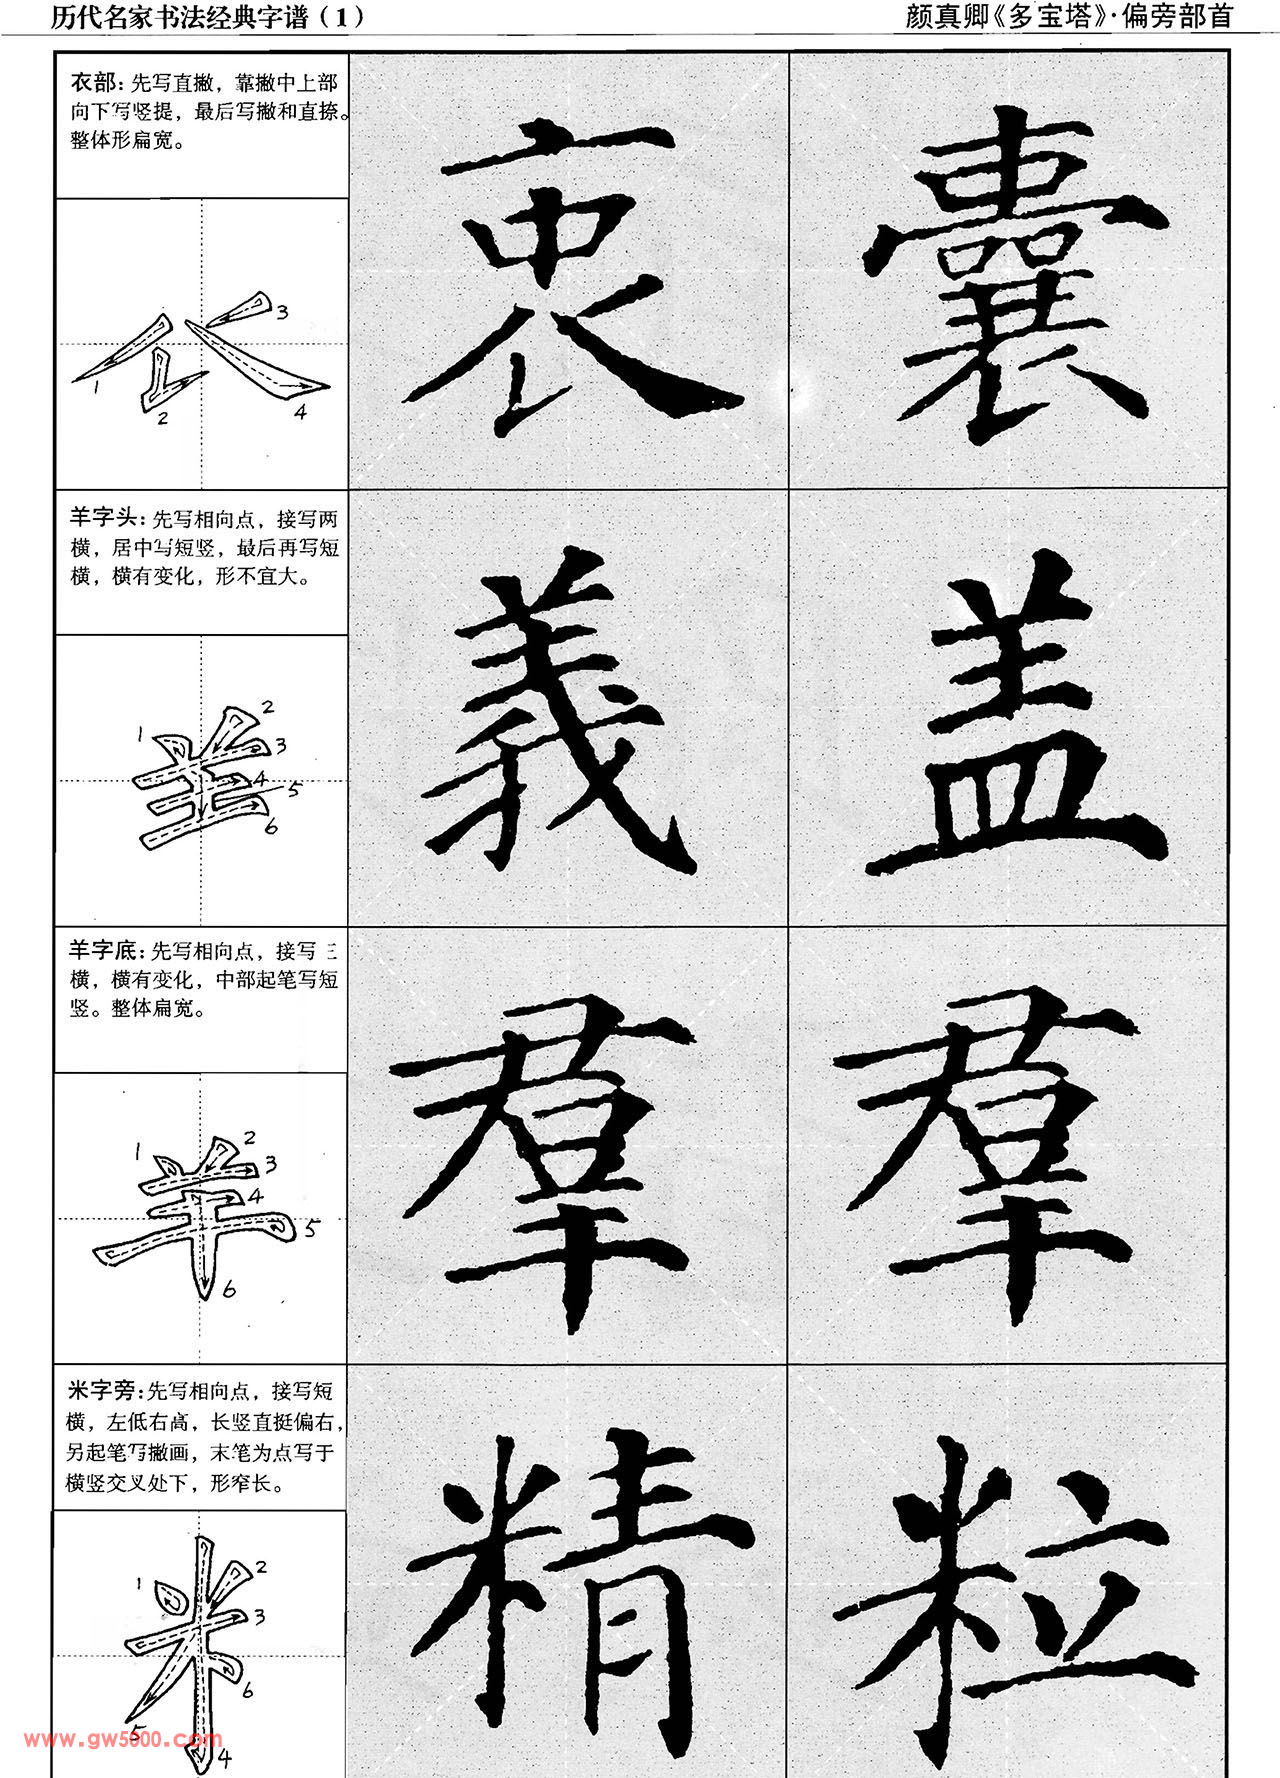 历代名家书法经典字谱（1） 颜真卿《多宝塔》·偏旁部首
衣部：先写直撇，靠撇中上部
向下写竖提，最后写撇和直捺。
整体形扁宽。
1
2
3
4
衷 囊
羊字头：先写相向点，接写两
横，居中写短竖，最后再写短
横，横有变化，形不宜大。
1
2
3
4
5
6
義 盖
羊字底：先写相向点，接写三
横，横有变化，中部起笔写短
竖。整体扁宽。
1
2
3
4
5
6
羣 羣
米字旁：先写相向点，接写短
横，左低右高，长竖直挺偏右，
另起笔写撇画，末笔为点写于
横竖交叉处下，形窄长。
1
2
3
4
5
6
精 粒
www.gw5000.com